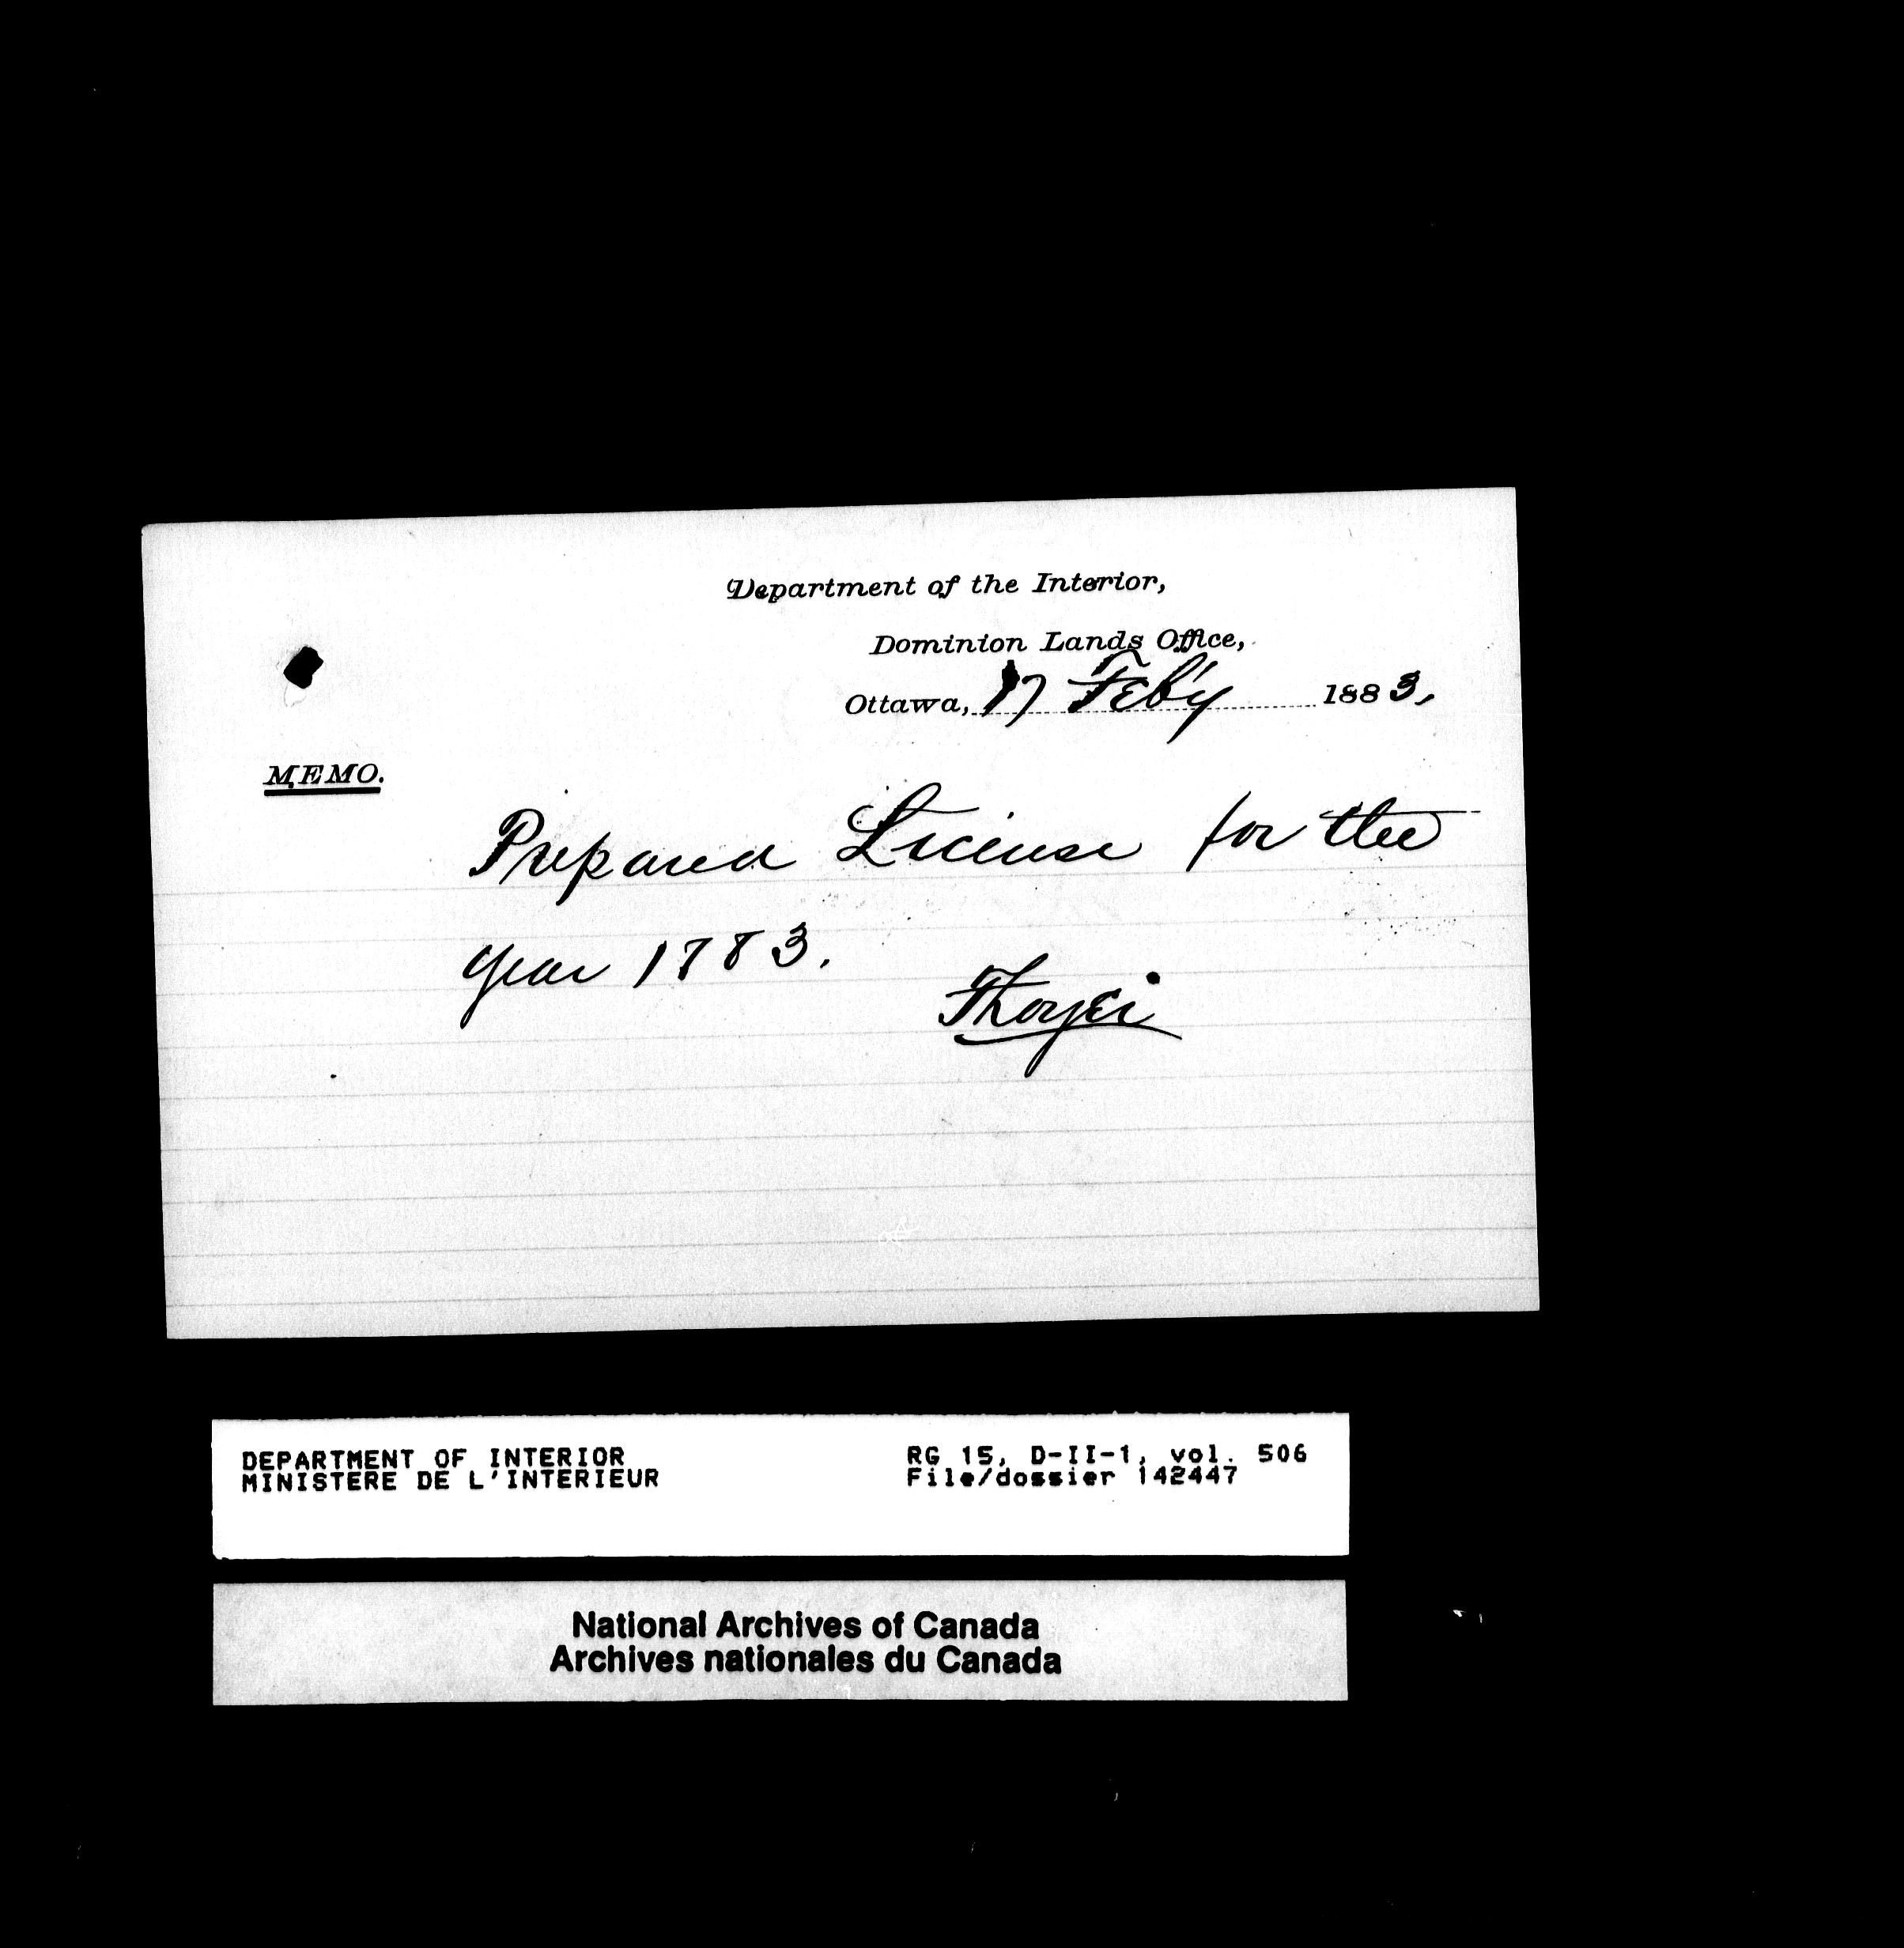 Department of the Interior,
Dominion Lands Office,
Ottawa, 17 Feb'y 1883,
MEMO.
Prepared License for the
year 1883.
DEPARTMENT OF INTERIOR
MINISTERE DE L'INTERIEUR
RG 15, D-II-1, vol. 506
File/dossier 142447
National Archives of Canada
Archives nationales du Canada